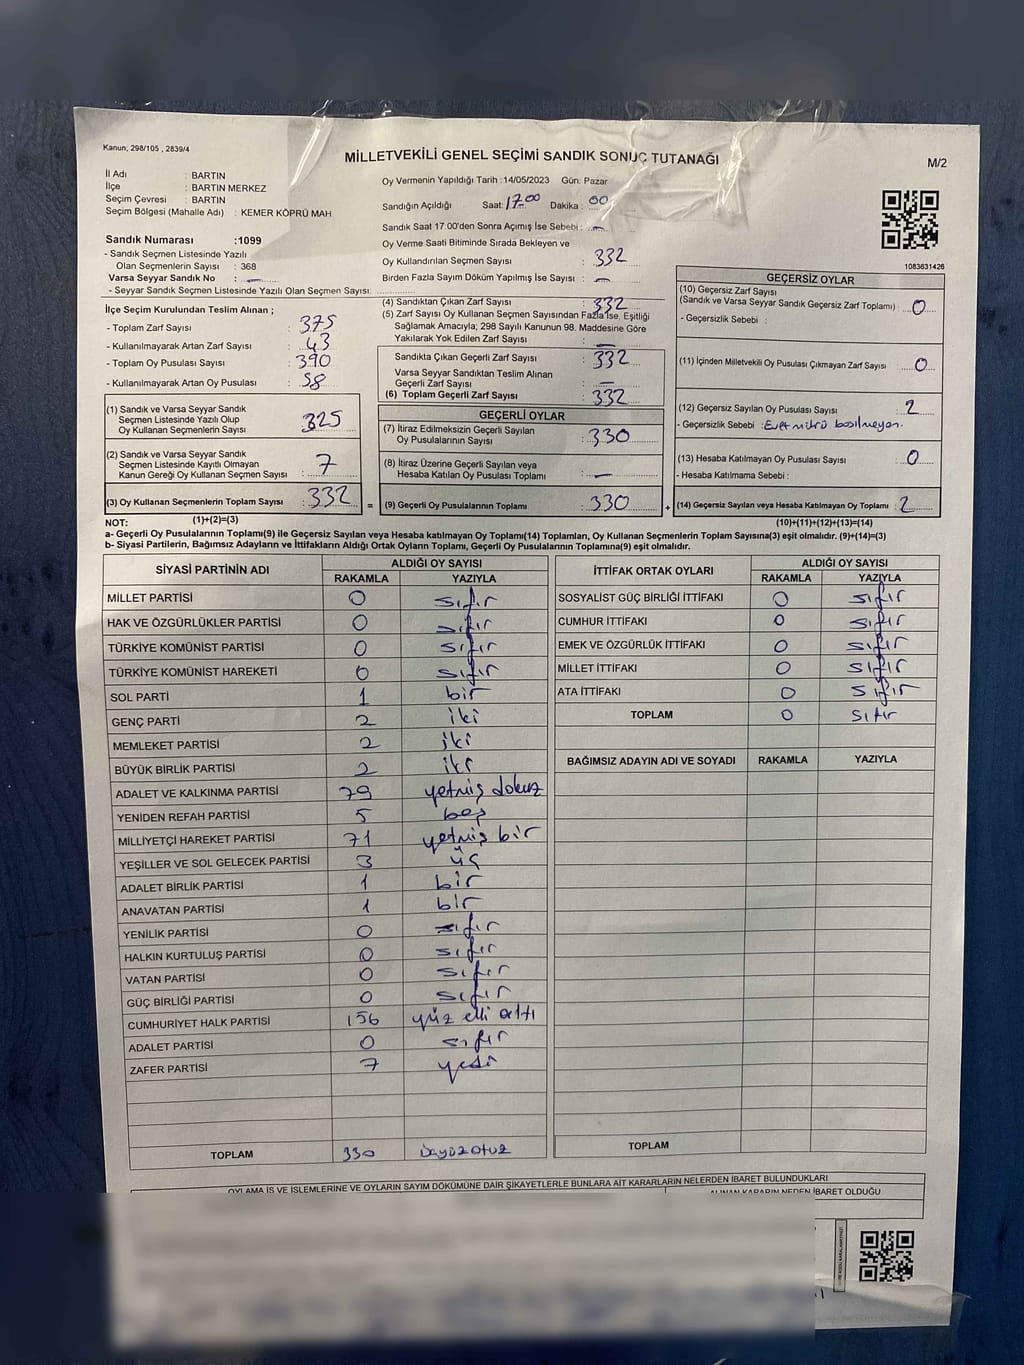 Kanun; 298/105 , 2839/4
MİLLETVEKİLİ GENEL SEÇİMİ SANDIK SONUÇ TUTANAĞI
M/2
İl Adı : BARTIN
İlçe : BARTIN MERKEZ
Seçim Çevresi : BARTIN
Seçim Bölgesi (Mahalle Adı) : KEMER KÖPRÜ MAH
Sandık Numarası :1099
- Sandık Seçmen Listesinde Yazılı
Olan Seçmenlerin Sayısı : 368
Varsa Seyyar Sandık No : —
- Seyyar Sandık Seçmen Listesinde Yazılı Olan Seçmen Sayısı:
Oy Vermenin Yapıldığı Tarih :14/05/2023 Gün: Pazar
Sandığın Açıldığı Saat: 17.00 Dakika : 00
Sandık Saat 17:00'den Sonra Açımış İse Sebebi : —
Oy Verme Saati Bitiminde Sırada Bekleyen ve
Oy Kullandırılan Seçmen Sayısı : 332
Birden Fazla Sayım Döküm Yapılmış İse Sayısı : —
1083631426
İlçe Seçim Kurulundan Teslim Alınan ;
- Toplam Zarf Sayısı : 375
- Kullanılmayarak Artan Zarf Sayısı : 43
- Toplam Oy Pusulası Sayısı : 390
- Kullanılmayarak Artan Oy Pusulası : 58
(1) Sandık ve Varsa Seyyar Sandık
Seçmen Listesinde Yazılı Olup
Oy Kullanan Seçmenlerin Sayısı : 325
(2) Sandık ve Varsa Seyyar Sandık
Seçmen Listesinde Kayıtlı Olmayan
Kanun Gereği Oy Kullanan Seçmen Sayısı : 7
(3) Oy Kullanan Seçmenlerin Toplam Sayısı : 332 =
(4) Sandıktan Çıkan Zarf Sayısı : 332
(5) Zarf Sayısı Oy Kullanan Seçmen Sayısından Fazla İse, Eşitliği
Sağlamak Amacıyla; 298 Sayılı Kanunun 98. Maddesine Göre
Yakılarak Yok Edilen Zarf Sayısı : —
Sandıkta Çıkan Geçerli Zarf Sayısı : 332
Varsa Seyyar Sandıktan Teslim Alınan
Geçerli Zarf Sayısı : —
(6) Toplam Geçerli Zarf Sayısı : 332
GEÇERLİ OYLAR
(7) İtiraz Edilmeksizin Geçerli Sayılan
Oy Pusulalarının Sayısı : 330
(8) İtiraz Üzerine Geçerli Sayılan veya
Hesaba Katılan Oy Pusulası Toplamı : —
(9) Geçerli Oy Pusulalarının Toplamı : 330 +
GEÇERSİZ OYLAR
(10) Geçersiz Zarf Sayısı
(Sandık ve Varsa Seyyar Sandık Geçersiz Zarf Toplamı) : 0
- Geçersizlik Sebebi :
(11) İçinden Milletvekili Oy Pusulası Çıkmayan Zarf Sayısı : 0
(12) Geçersiz Sayılan Oy Pusulası Sayısı : 2
- Geçersizlik Sebebi : Evet mührü basılmeyen.
(13) Hesaba Katılmayan Oy Pusulası Sayısı : 0
- Hesaba Katılmama Sebebi :
(14) Geçersiz Sayılan veya Hesaba Katılmayan Oy Toplamı : 2
NOT: (1)+(2)=(3) (10)+(11)+(12)+(13)=(14)
a- Geçerli Oy Pusulalarının Toplamı(9) ile Geçersiz Sayılan veya Hesaba katılmayan Oy Toplamı(14) Toplamları, Oy Kullanan Seçmenlerin Toplam Sayısına(3) eşit olmalıdır. (9)+(14)=(3)
b- Siyasi Partilerin, Bağımsız Adayların ve İttifakların Aldığı Ortak Oyların Toplamı, Geçerli Oy Pusulalarının Toplamına(9) eşit olmalıdır.
SİYASİ PARTİNİN ADI ALDIĞI OY SAYISI
RAKAMLA YAZIYLA
MİLLET PARTİSİ 0 sıfır
HAK VE ÖZGÜRLÜKLER PARTİSİ 0 sıfır
TÜRKİYE KOMÜNİST PARTİSİ 0 sıfır
TÜRKİYE KOMÜNİST HAREKETİ 0 sıfır
SOL PARTİ 1 bir
GENÇ PARTİ 2 iki
MEMLEKET PARTİSİ 2 iki
BÜYÜK BİRLİK PARTİSİ 2 iki
ADALET VE KALKINMA PARTİSİ 79 yetmiş dokuz
YENİDEN REFAH PARTİSİ 5 beş
MİLLİYETÇİ HAREKET PARTİSİ 71 yetmiş bir
YEŞİLLER VE SOL GELECEK PARTİSİ 3 üç
ADALET BİRLİK PARTİSİ 1 bir
ANAVATAN PARTİSİ 1 bir
YENİLİK PARTİSİ 0 sıfır
HALKIN KURTULUŞ PARTİSİ 0 sıfır
VATAN PARTİSİ 0 sıfır
GÜÇ BİRLİĞİ PARTİSİ 0 sıfır
CUMHURİYET HALK PARTİSİ 156 yüz elli altı
ADALET PARTİSİ 0 sıfır
ZAFER PARTİSİ 7 yedi
TOPLAM 330 üçyüzotuz
İTTİFAK ORTAK OYLARI ALDIĞI OY SAYISI
RAKAMLA YAZIYLA
SOSYALİST GÜÇ BİRLİĞİ İTTİFAKI 0 sıfır
CUMHUR İTTİFAKI 0 sıfır
EMEK VE ÖZGÜRLÜK İTTİFAKI 0 sıfır
MİLLET İTTİFAKI 0 sıfır
ATA İTTİFAKI 0 sıfır
TOPLAM 0 sıfır
BAĞIMSIZ ADAYIN ADI VE SOYADI RAKAMLA YAZIYLA
TOPLAM
OYLAMA İŞ VE İŞLEMLERİNE VE OYLARIN SAYIM DÖKÜMÜNE DAİR ŞİKAYETLERLE BUNLARA AİT KARARLARIN NELERDEN İBARET BULUNDUKLARI
ALINAN KARARIN NEDEN İBARET OLDUĞU